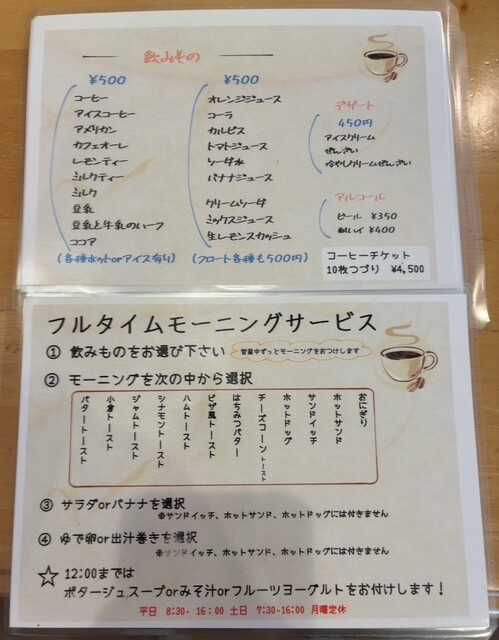 飲みもの
¥500
コーヒー
アイスコーヒー
アメリカン
カフェオーレ
レモンティー
ミルクティー
ミルク
豆乳
豆乳と牛乳のハーフ
ココア
(各種ホットorアイス有り)
¥500
オレンジジュース
コーラ
カルピス
トマトジュース
ソーダ水
バナナジュース
クリームソーダ
ミックスジュース
生レモンスカッシュ
(フロート各種も500円)
デザート
450円
アイスクリーム
ぜんざい
冷やしクリームぜんざい
アルコール
ビール ¥350
酎ハイ ¥400
コーヒーチケット
10枚つづり ¥4,500
フルタイムモーニングサービス
① 飲みものをお選び下さい
営業中ずっとモーニングをおつけします
② モーニングを次の中から選択
おにぎり
ホットサンド
サンドイッチ
ホットドッグ
チーズコーントースト
はちみつバター
ピザ風トースト
ハムトースト
シナモントースト
ジャムトースト
小倉トースト
バタートースト
③ サラダorバナナを選択
※サンドイッチ、ホットサンド、ホットドッグには付きません
④ ゆで卵or出汁巻きを選択
※サンドイッチ、ホットサンド、ホットドッグには付きません
☆ 12:00までは
ポタージュスープorみそ汁orフルーツヨーグルトをお付けします！
平日 8:30-16:00 土日 7:30-16:00 月曜定休